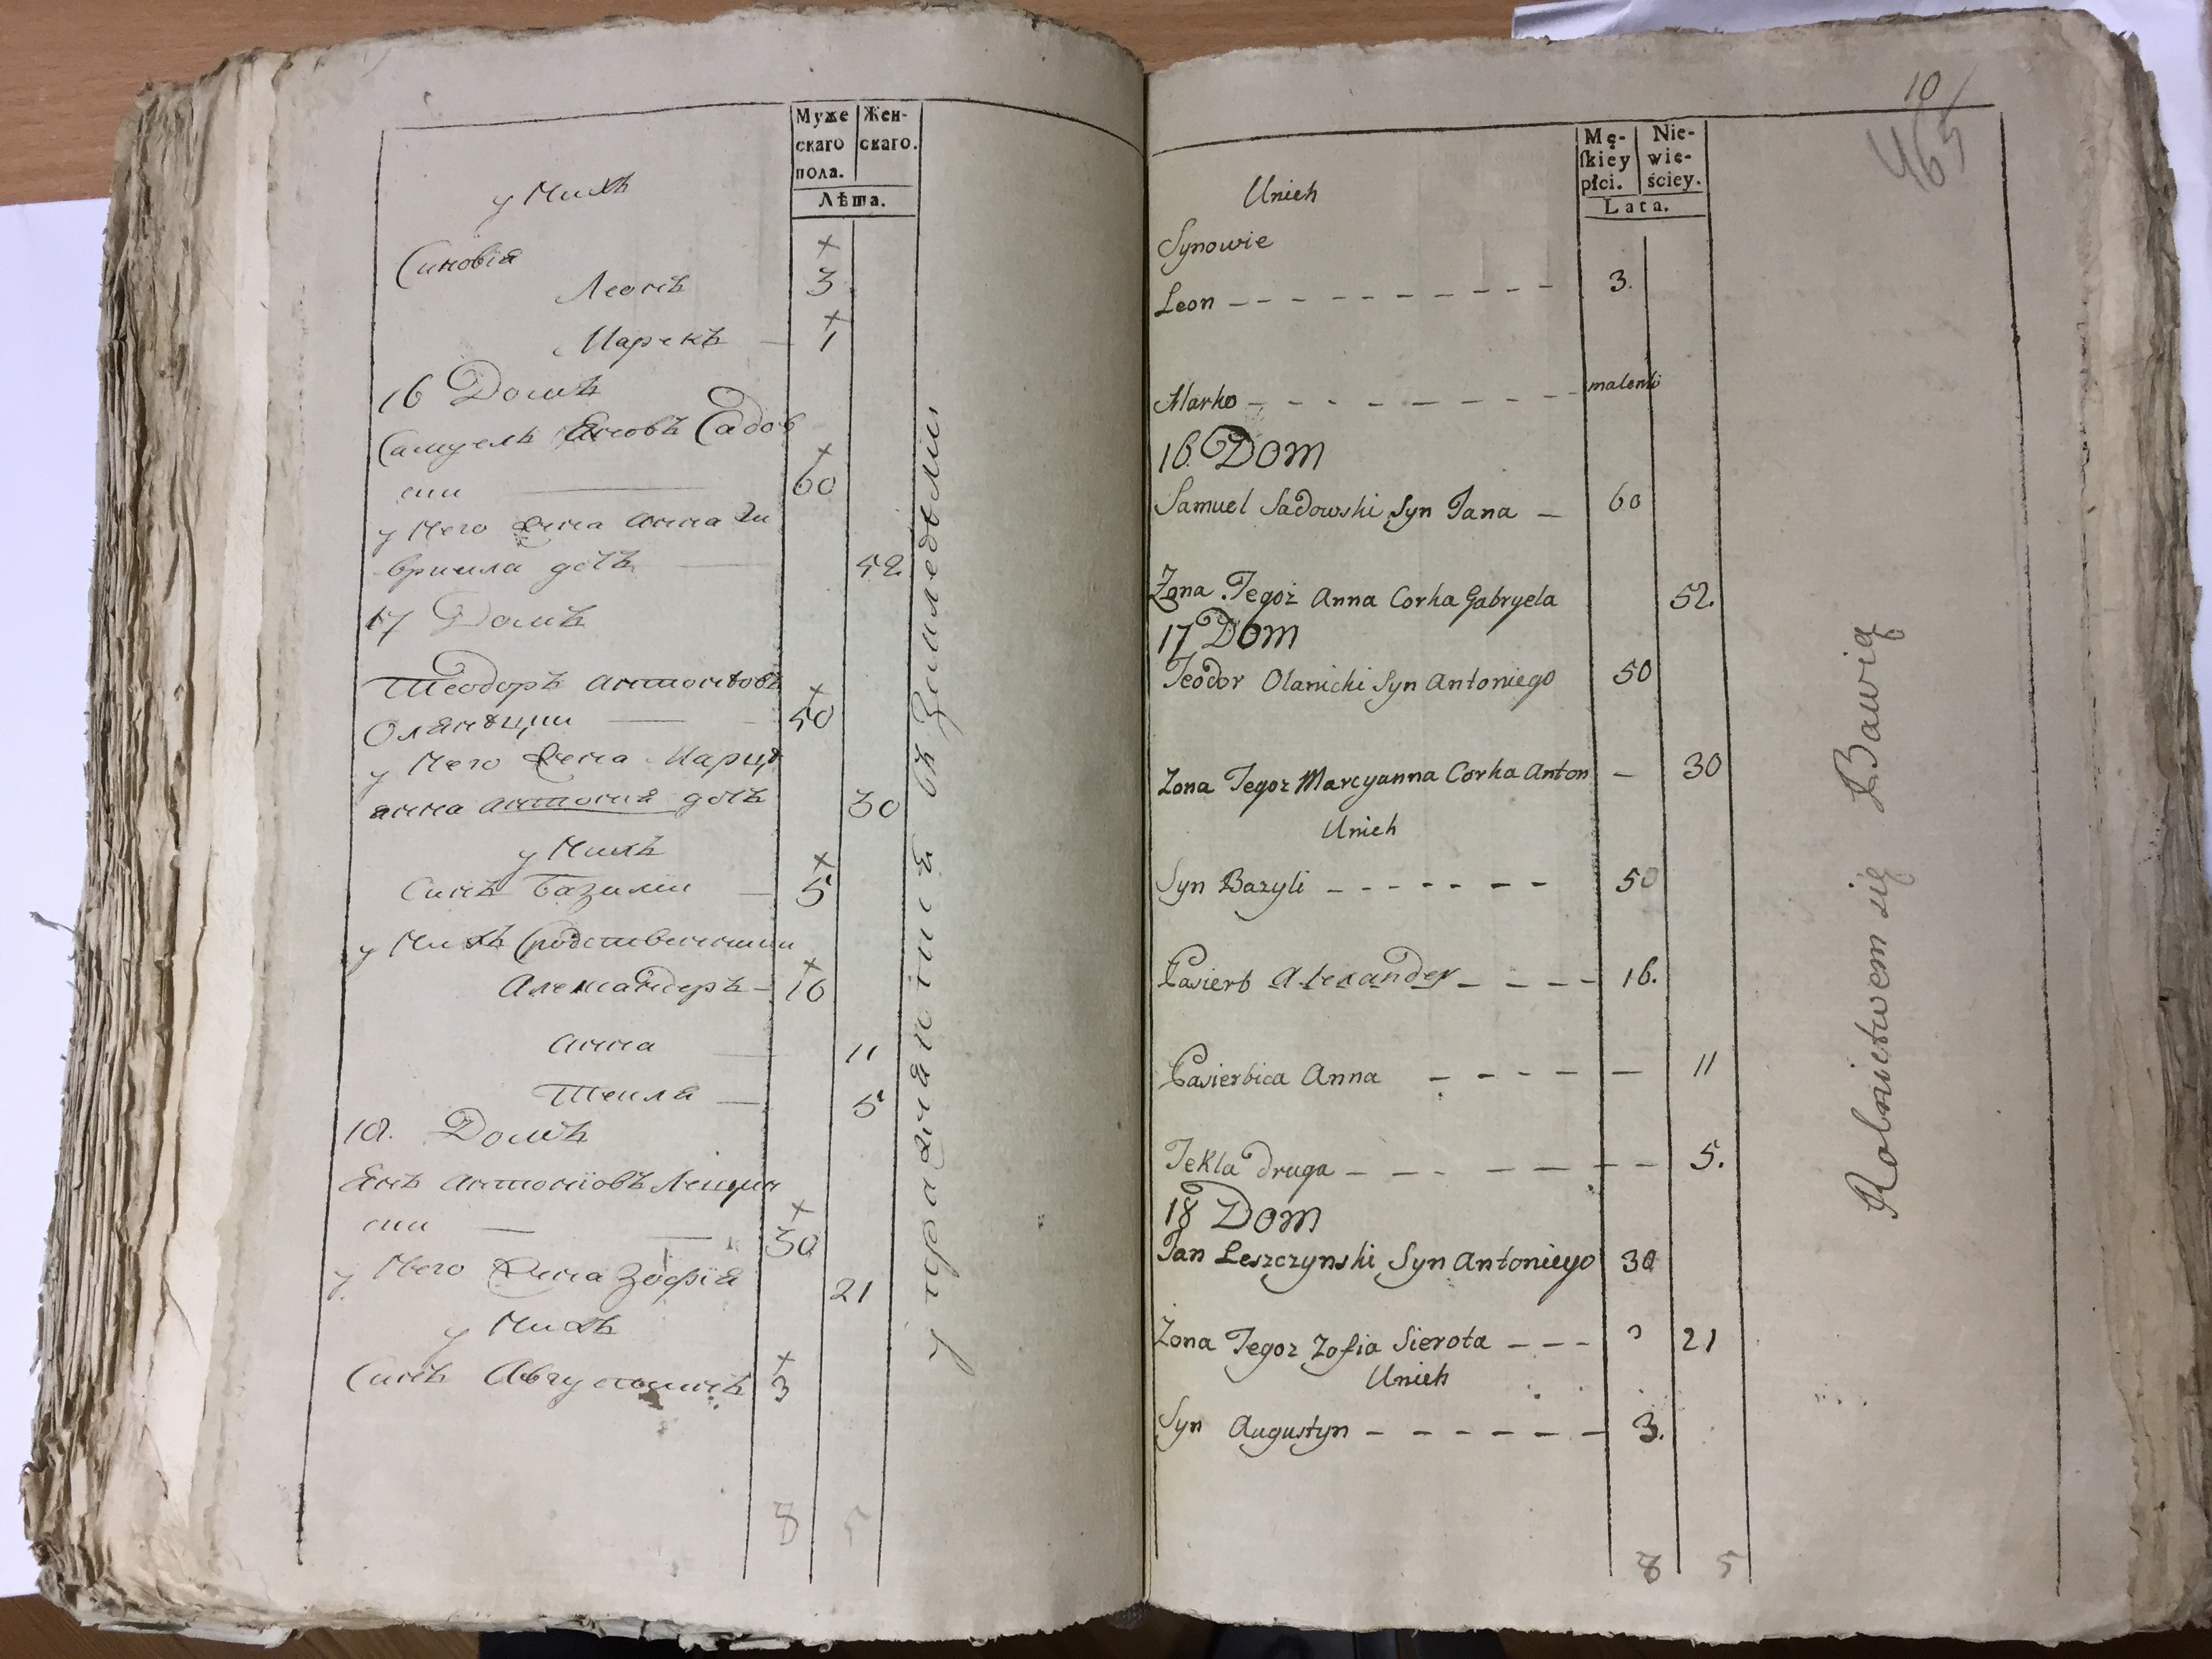 Муже
скаго
пола.
Жен-
скаго.
Лѣта.
у Нихъ
Синовія
Леонъ 3
Марекъ — 1
16 Домъ
Самуель Яновъ Садов
ски — 60
у Него Жена Анна Га
вриила дочь — 52
17 Домъ
Теодоръ Антоновъ
Оляницки — 50
у Него Жена Марця
анна Антонія дочь 30
у Нихъ
Синъ Базили — 5
у Нихъ Сродственники
Александеръ — 16
Анна — 11
Текля — 5
18. Домъ
Янъ Антоніовъ Лещин
ски — 30
у Него Жена Зофія 21
у Нихъ
Синъ Августинъ 3
8 5
упражняются въ Земледѣліи
10
465
Mę-
ſkiey
płci.
Nie-
wie-
ściey.
Lata.
Unich
Synowie
Leon - - - - - - - - - - 3.
Marko - - - - - - - - malenki
16. Dom
Samuel Sadowski Syn Jana — 60
Zona Tegoż Anna Corka Gabryela 52.
17 Dom
Teodor Olanicki Syn Antoniego 50
Zona Tegoz Marcyanna Corka Anton — 30
Unich
Syn Bazyli - - - - - - - 50
Pasierb Alexander - - - - 16.
Pasierbica Anna - - - - — 11
Tekla druga - - - - - - - 5.
18 Dom
Jan Leszczynski Syn Antoniego 30
Zona Tegoz Zofia Sierota - - - 21
Unich
Syn Augustyn - - - - - - 3.
8 5
Rolnictwem się Bawią